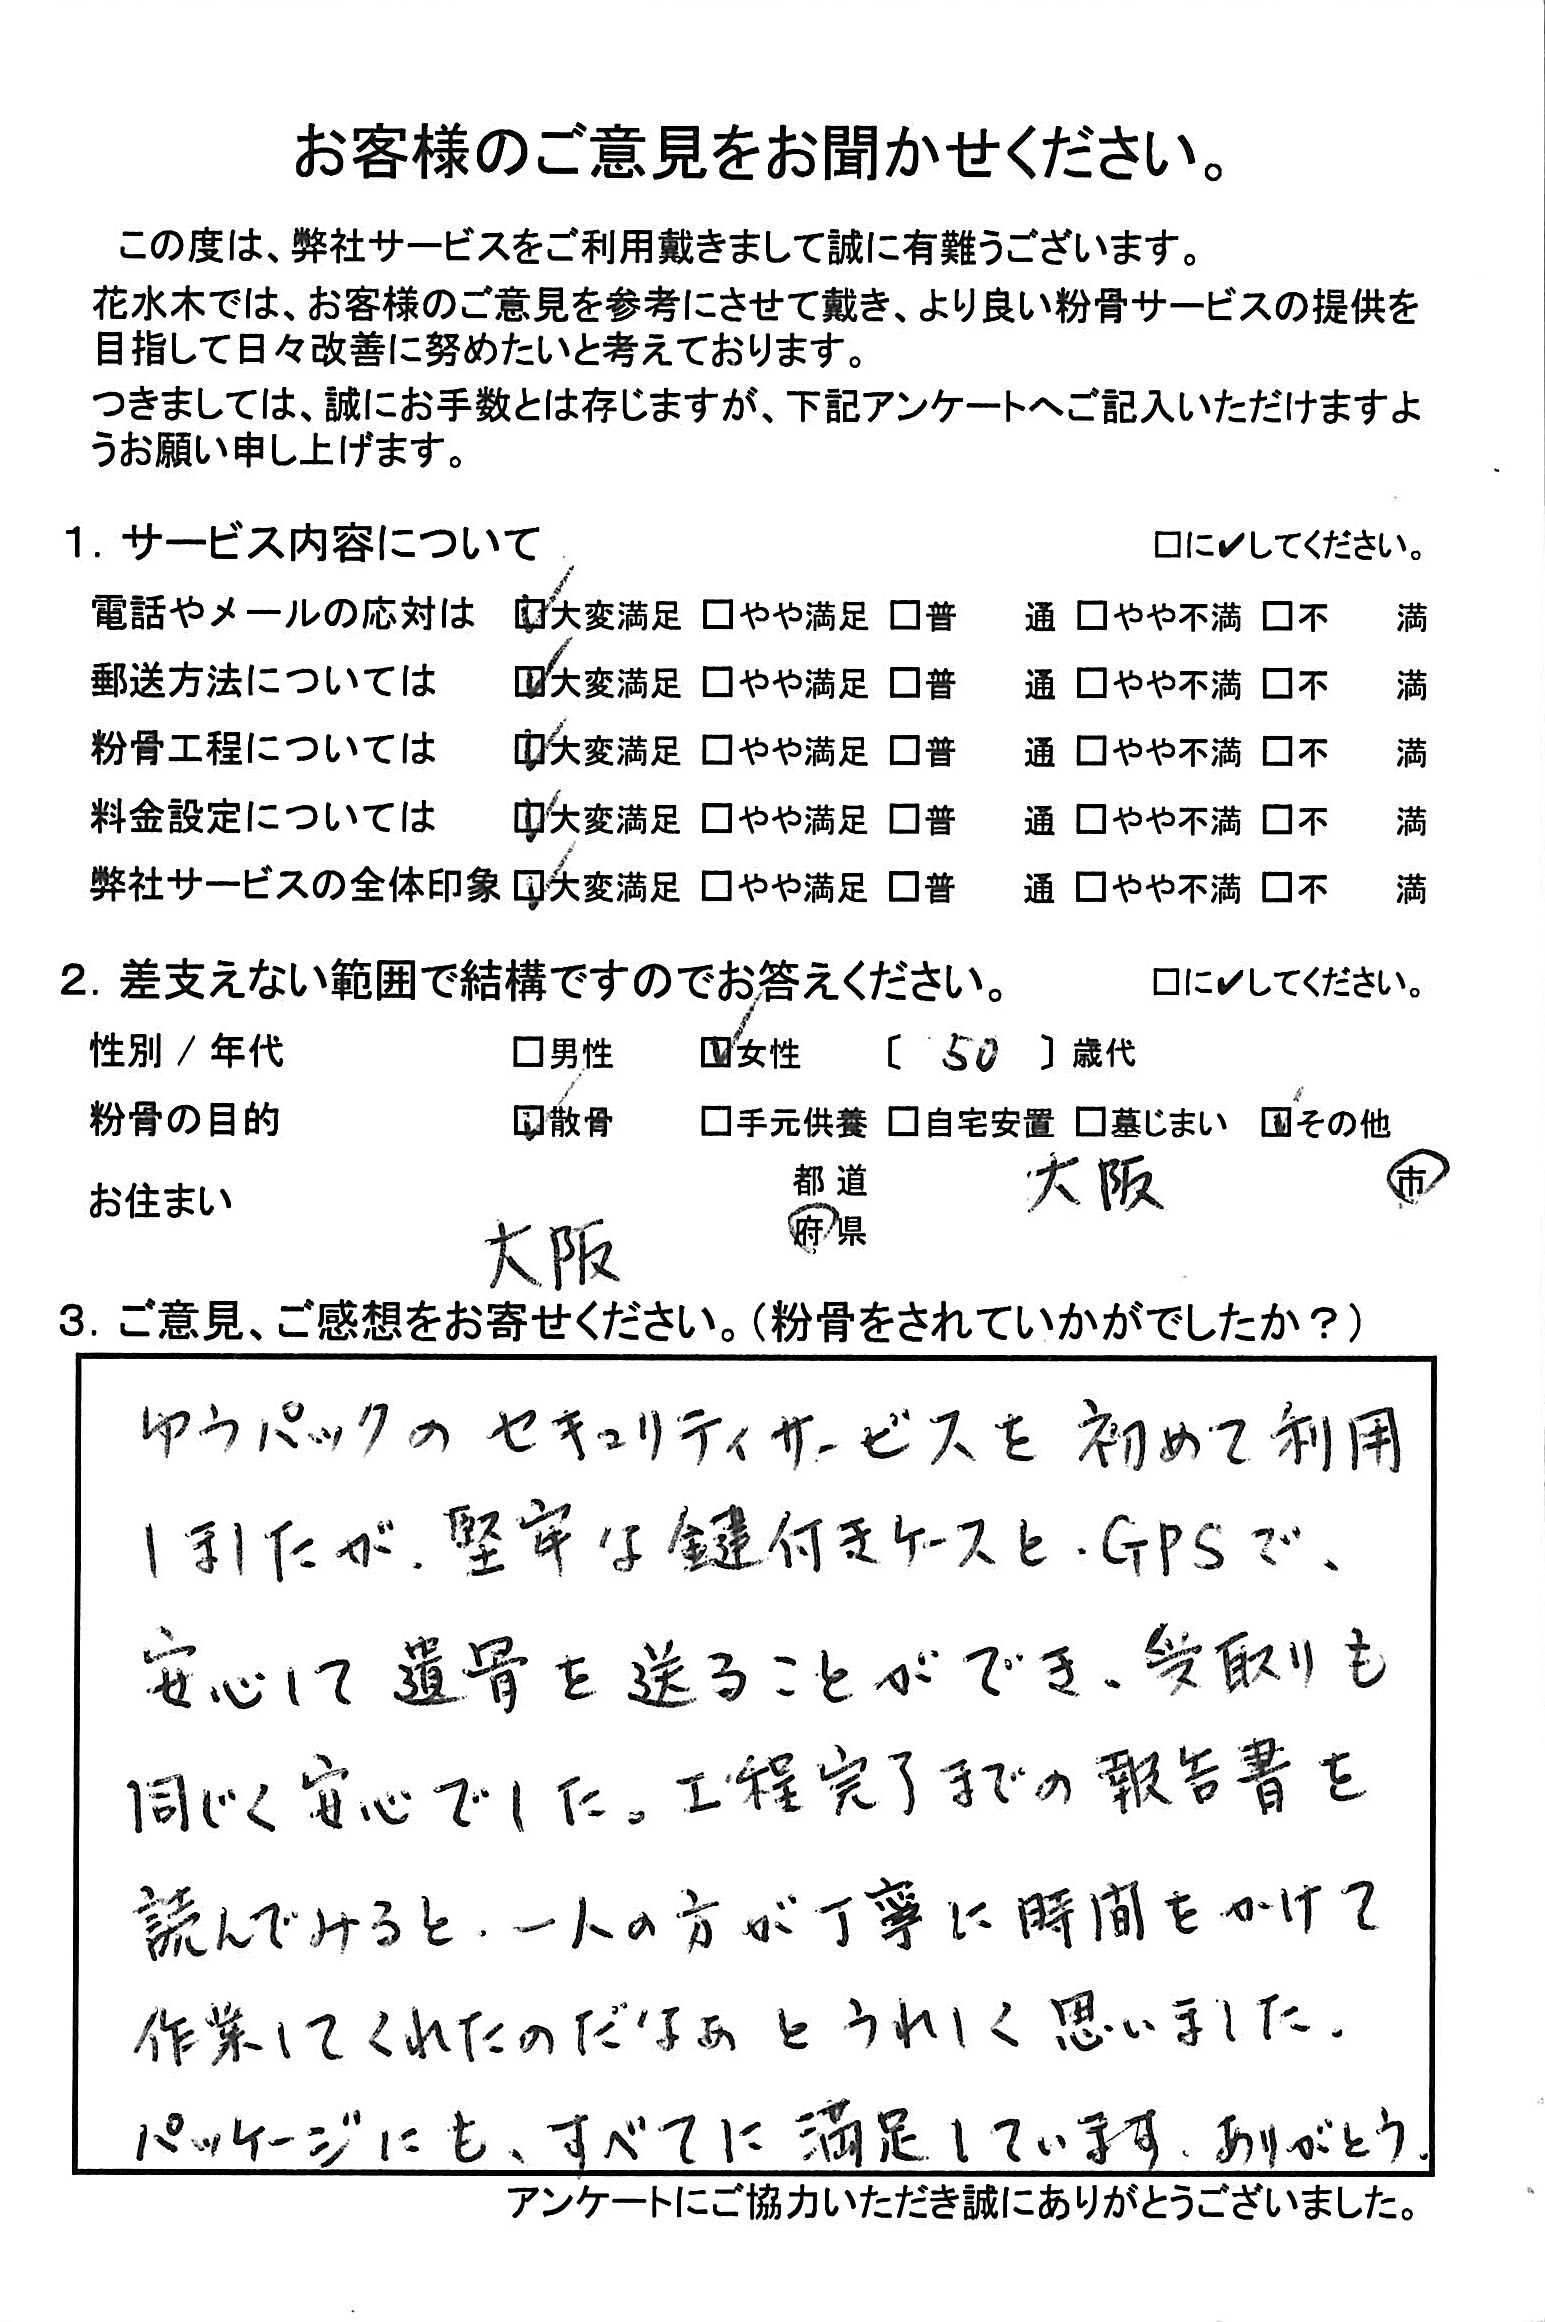 お客様のご意見をお聞かせください。
この度は、弊社サービスをご利用戴きまして誠に有難うございます。
花水木では、お客様のご意見を参考にさせて戴き、より良い粉骨サービスの提供を
目指して日々改善に努めたいと考えております。
つきましては、誠にお手数とは存じますが、下記アンケートへご記入いただけますよ
うお願い申し上げます。
1. サービス内容について □に✔してください。
電話やメールの応対は ☑大変満足 □やや満足 □普 通 □やや不満 □不 満
郵送方法については ☑大変満足 □やや満足 □普 通 □やや不満 □不 満
粉骨工程については ☑大変満足 □やや満足 □普 通 □やや不満 □不 満
料金設定については ☑大変満足 □やや満足 □普 通 □やや不満 □不 満
弊社サービスの全体印象 ☑大変満足 □やや満足 □普 通 □やや不満 □不 満
2. 差支えない範囲で結構ですのでお答えください。 □に✔してください。
性別 / 年代 □男性 ☑女性 〔 50 〕歳代
粉骨の目的 ☑散骨 □手元供養 □自宅安置 □墓じまい ☑その他
お住まい 大阪 都道府県 大阪 市
3. ご意見、ご感想をお寄せください。(粉骨をされていかがでしたか?)
ゆうパックのセキュリティサービスを初めて利用
しましたが、堅牢な鍵付きケースと、GPSで、
安心して遺骨を送ることができ、受取りも
同じく安心でした。工程完了までの報告書を
読んでみると、一人の方が丁寧に時間をかけて
作業してくれたのだなぁとうれしく思いました。
パッケージにも、すべてに満足しています。ありがとう。
アンケートにご協力いただき誠にありがとうございました。